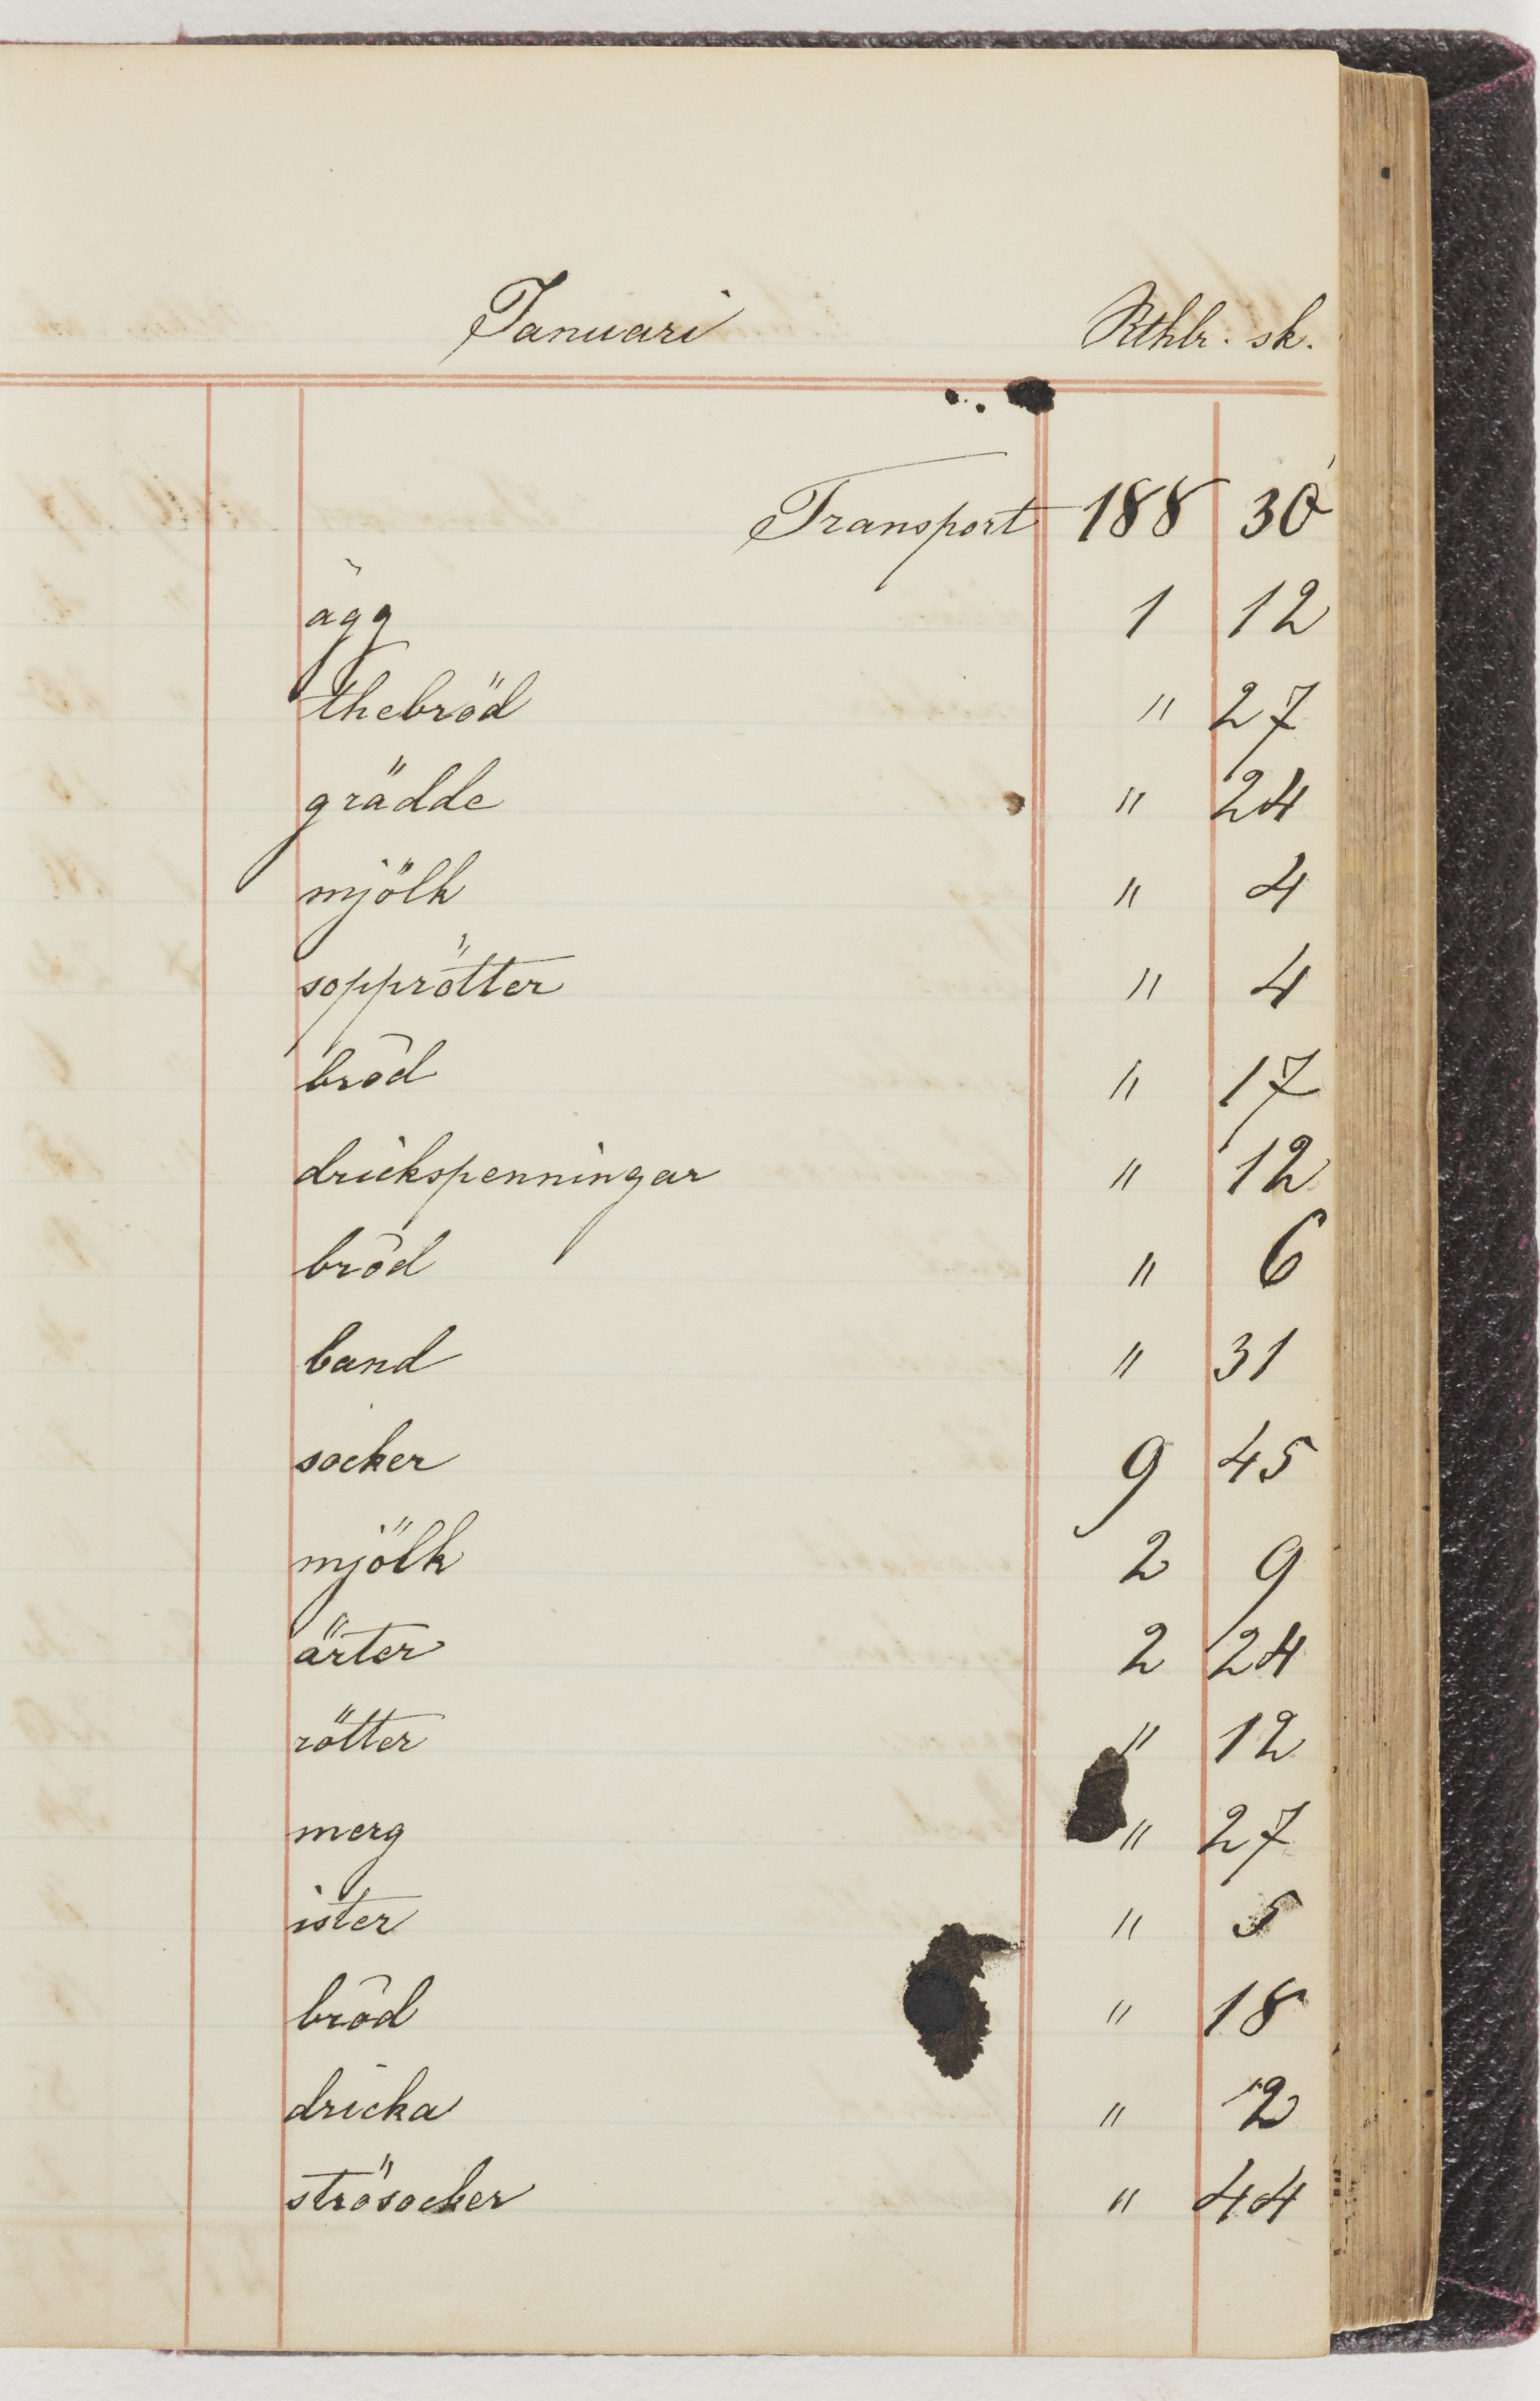 Januari Rthlr. sk.
Transport 188 30
ägg 1 12
thebröd " 27
grädde " 24
mjölk " 4
sopprötter " 4
bröd " 17
drickspenningar " 12
bröd " 6
band " 31
socker 9 45
mjölk 2 9
ärter 2 24
rötter " 12
merg " 27
ister " 5
bröd " 18
dricka " 2
strösocker " 44